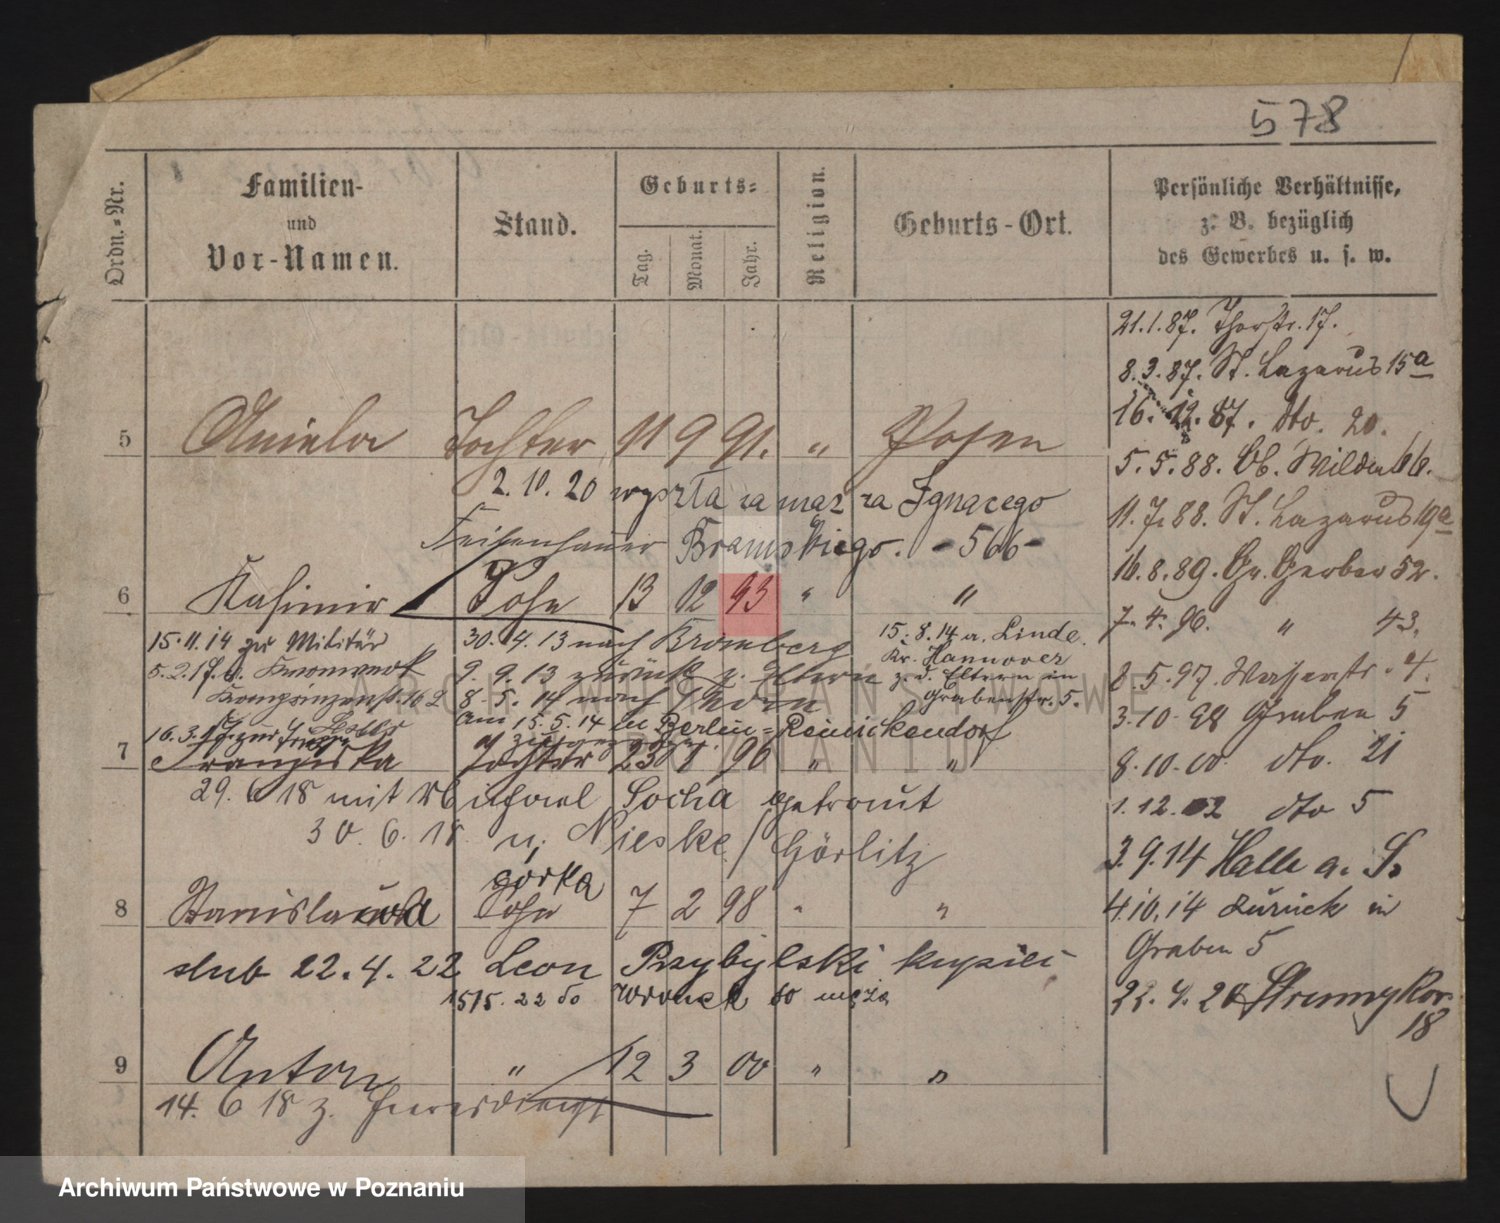 578
Ordn.-Nr.
Familien-
und
Vor-Namen.
Stand.
Geburts-
Tag.
Monat.
Jahr.
Religion.
Geburts-Ort.
Persönliche Verhältnisse,
z. B. bezüglich
des Gewerbes u. s. w.
5 Aniela Tochter 11 9 91. " Posen
2.10.20 wyszła za mąz za Ignacego
Feisenhauer Bramskiego. -566-
6 Kasimir Sohn 13 12 93 " "
15.11.14 zur Militär
5.2.17.
Kronprinzenstr.
16.3.
30.4.13 nach Bromberg
9.9.13 zurück z. Eltern
8.5.14 nach Thorn
am 15.5.14 in Berlin-Reinickendorf
15.8.14 a. Linde
Kr. Hannover
z. d. Eltern in
Grabenstr. 5.
7 Franziska Tochter 23 1 96 " "
29. 6 18 mit Michael Socha getraut
30. 6. 18 n. Nieske / Görlitz
górka
8 Stanislawa Sohn 7 2 98 " "
slub 22.4.22 Leon Przybylski kupiec
15/5.22 do Wronek do męża
9 Anton " 12 3 00 " "
14. 6 18 z.
21.1.87. Thorstr. 17.
8.3.87. St. Lazarus 15a
16.12.87. dto. 20.
5.5.88. Ob. Wilda 66.
11.7.88. St. Lazarus 19a
16.8.89. Gr. Gerber 52.
7.4.96. " 43.
8.5.97. 4.
3.10.98 Graben 5
8.10.00. dto. 21
1.12.02 dto 5
3.9.14 Halle a. S.
4.10.14 zurück in
Graben 5
22.4.24 Strumykow.
18
ARCHIWUM PAŃSTWOWE
W POZNANIU
Archiwum Państwowe w Poznaniu